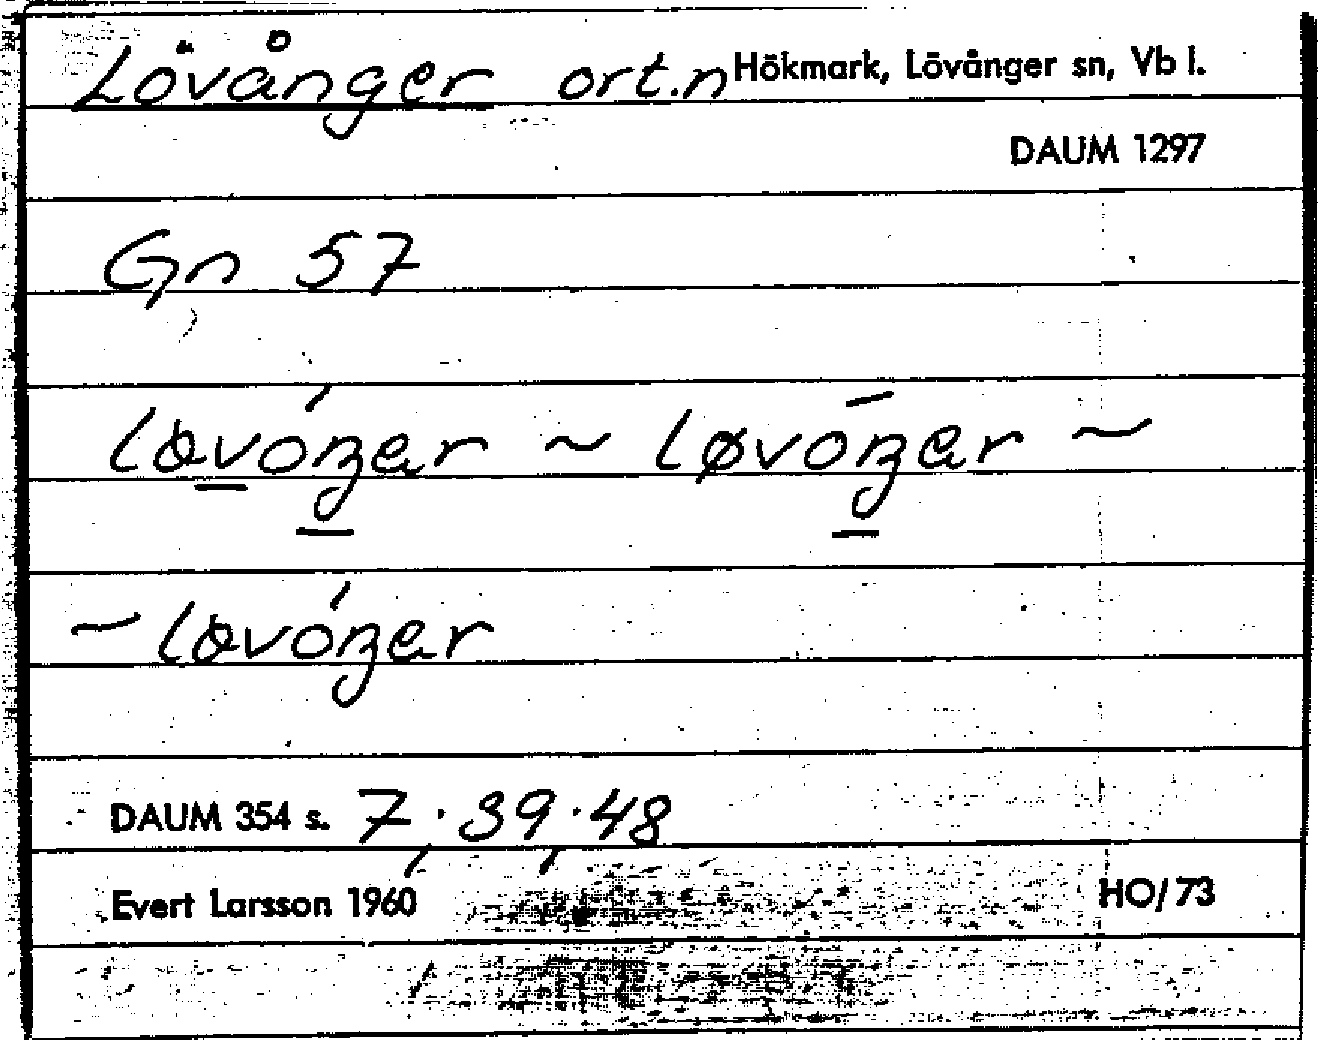 Lövånger ort.n Hökmark, Lövånger sn, Vb l.
DAUM 1297
Gn 57
løvóŋer ~ løvōŋer ~
~ løvóŋer
DAUM 354 s. 7, 39, 48
Evert Larsson 1960 HO/73